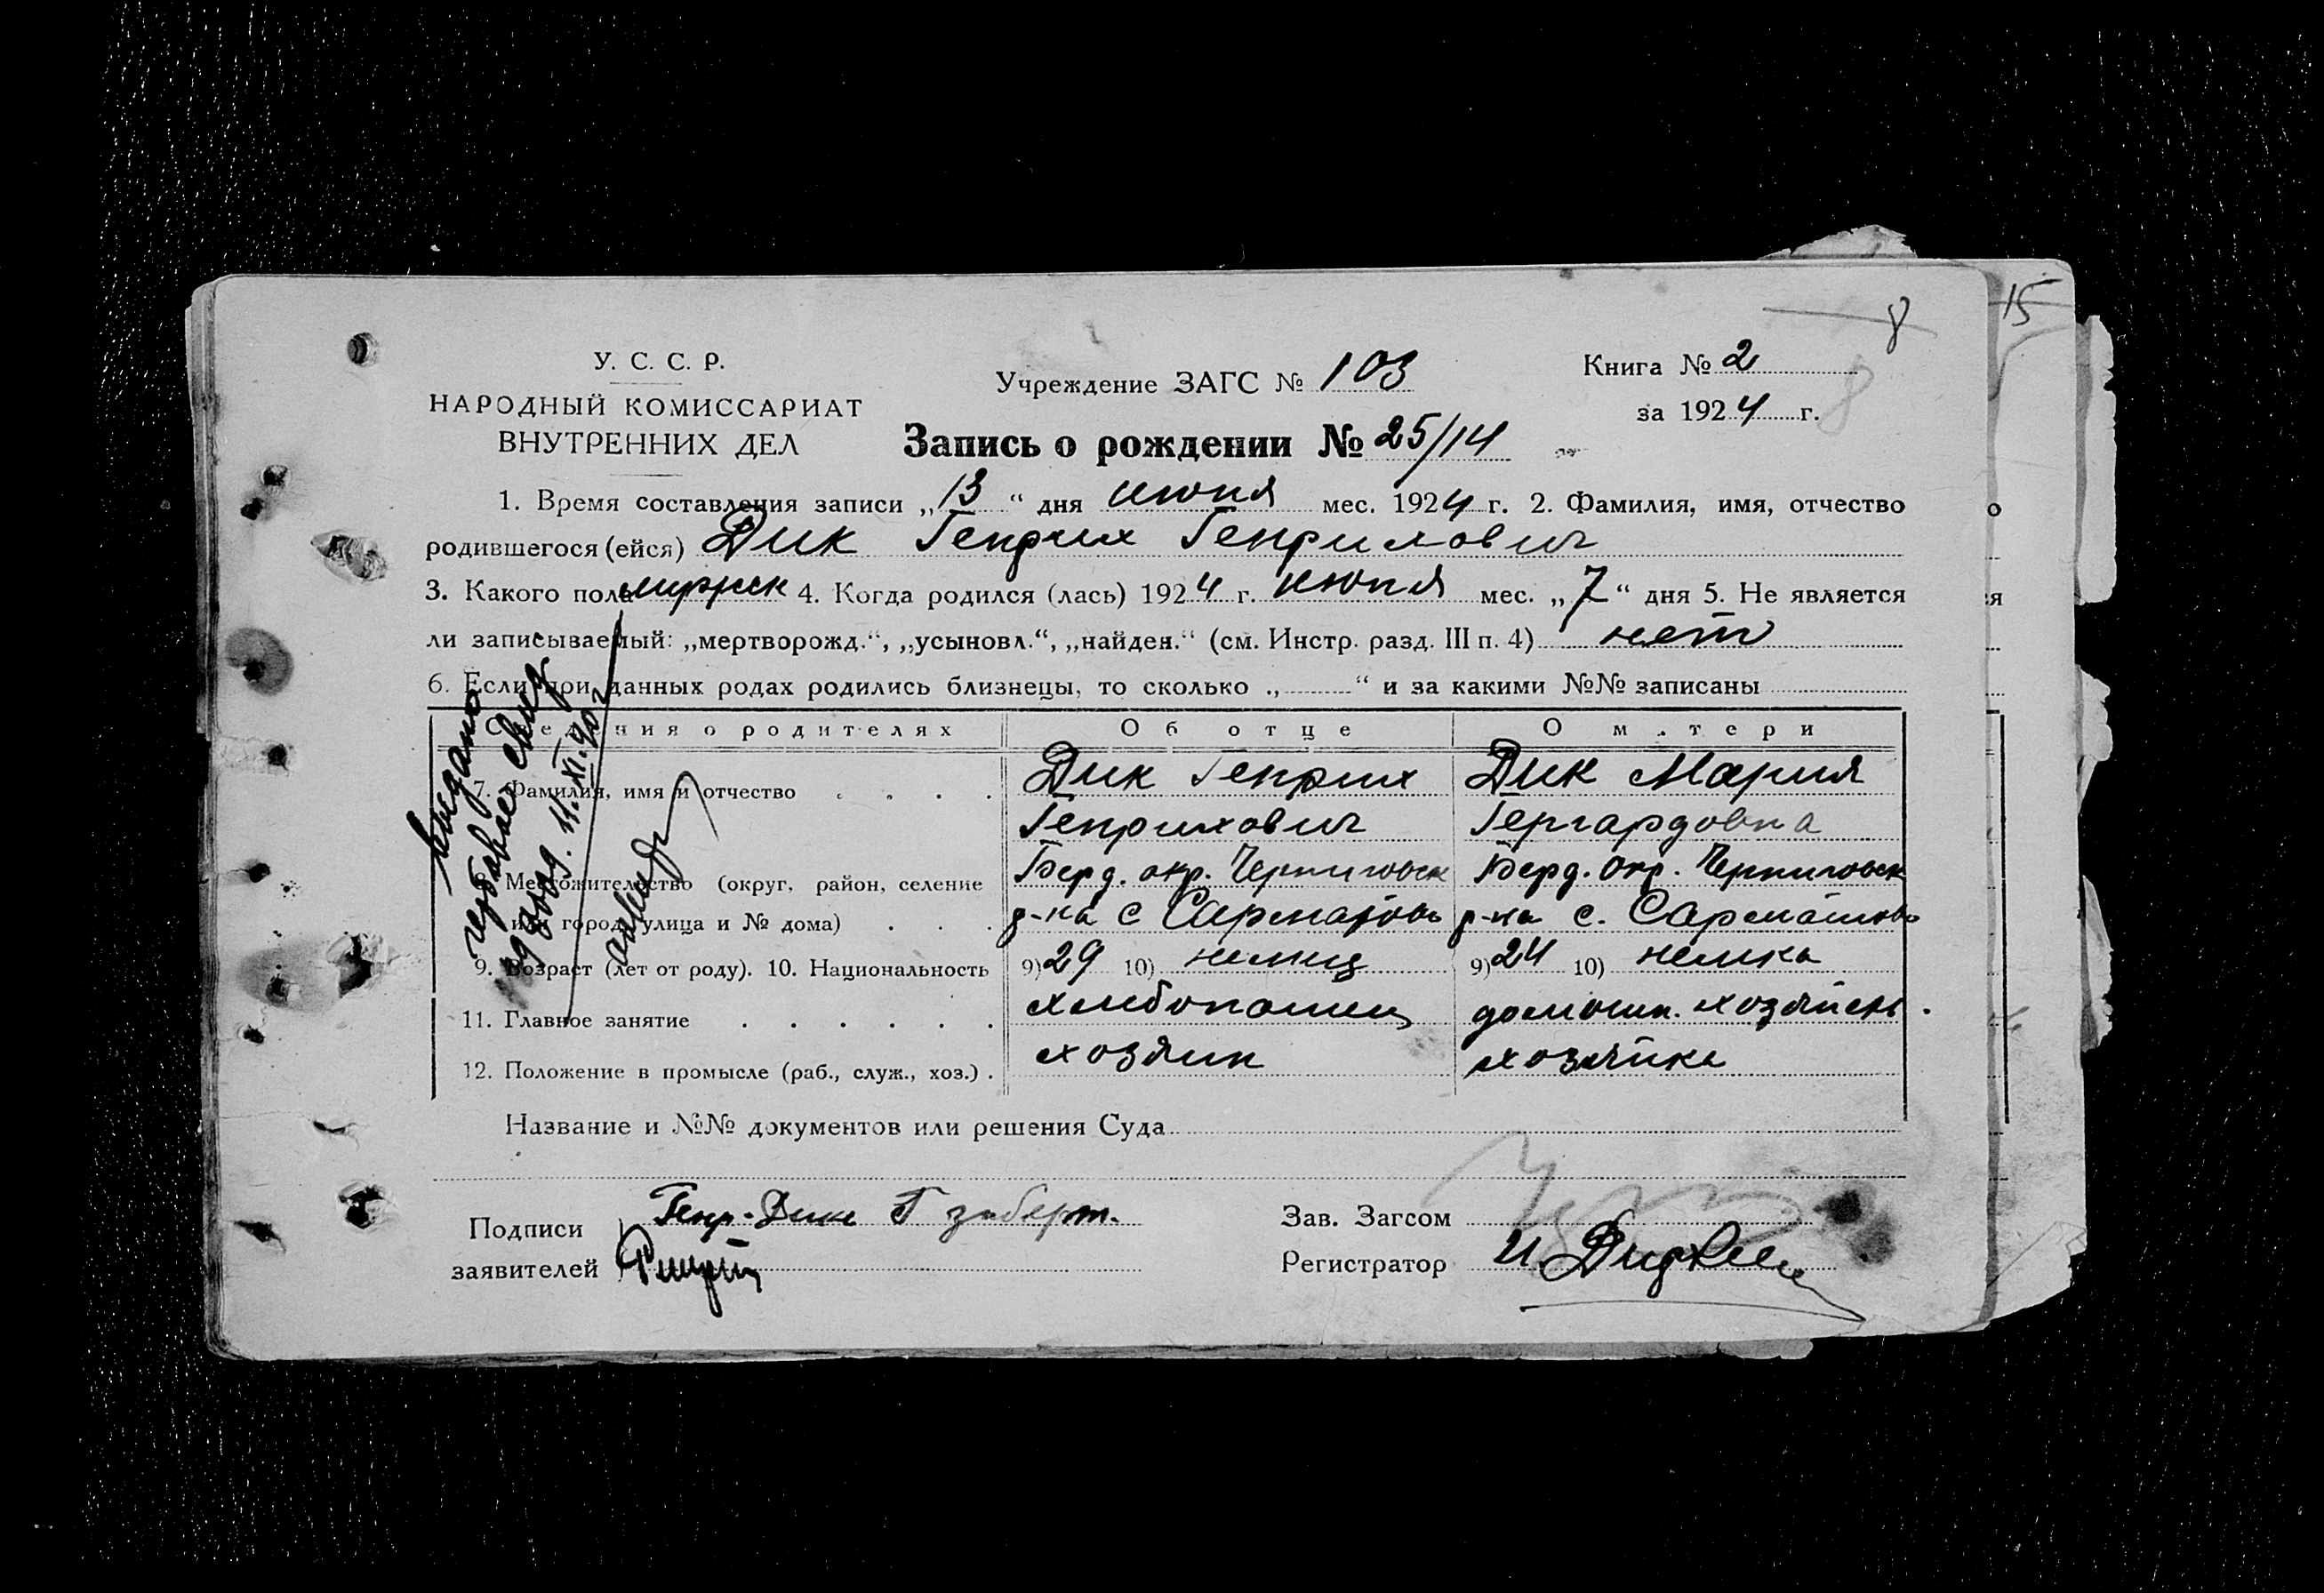 8
15
У. С. С. Р.
НАРОДНЫЙ КОМИССАРИАТ
ВНУТРЕННИХ ДЕЛ
Учреждение ЗАГС № 103
Книга № 2
за 1924 г.
8
Запись о рождении № 25/14
1. Время составления записи „13“ дня июня мес. 1924 г. 2. Фамилия, имя, отчество
родившегося (ейся) Дик Генрих Генрихович
3. Какого пола мужск 4. Когда родился (лась) 1924 г. июня мес. „7“ дня 5. Не является
ли записываемый: „мертворожд.“, „усыновл.“, „найден.“ (см. Инстр. разд. III п. 4) нет
6. Если при данных родах родились близнецы, то сколько „ “ и за какими №№ записаны
Сведения о родителях Об отце О матери
7. Фамилия, имя и отчество . . . . Дик Генрих Дик Мария
Генрихович Гергардовна
8. Местожительство (округ, район, селение Берд. окр. Черниговск Берд. окр. Черниговск
или город, улица и № дома) . . . р-на с Сарматовь р-на с. Сарматовь
9. Возраст (лет от роду). 10. Национальность 9) 29 10) немец 9) 24 10) немка
11. Главное занятие . . . . . . хлебопашец домошн. хозяйств.
12. Положение в промысле (раб., служ., хоз.) . хозяин хозяйка
Выдано
11.XI.
Название и №№ документов или решения Суда
Подписи
заявителей
Генр. Дик Г зиберт.
Зав. Загсом
Регистратор И.
о
я